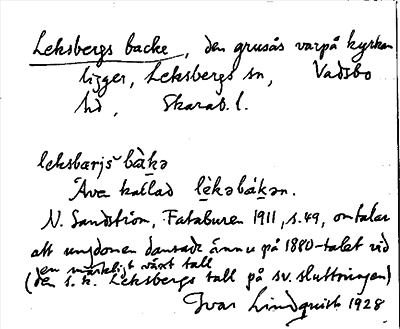 Leksbergs backe, den grusås varpå kyrkan
ligger, Leksbergs sn, Vadsbo
hd, Skarab. l.
leksbærjs bàkə
Även kallad lèkəbákən.
N. Sandström, Fataburen 1911, s. 49, omtalar
att ungdomen dansade ännu på 1880-talet vid
en märkligt växt tall
(den s. k. Leksbergs tall på sv. sluttningen)
Ivar Lindquist 1928